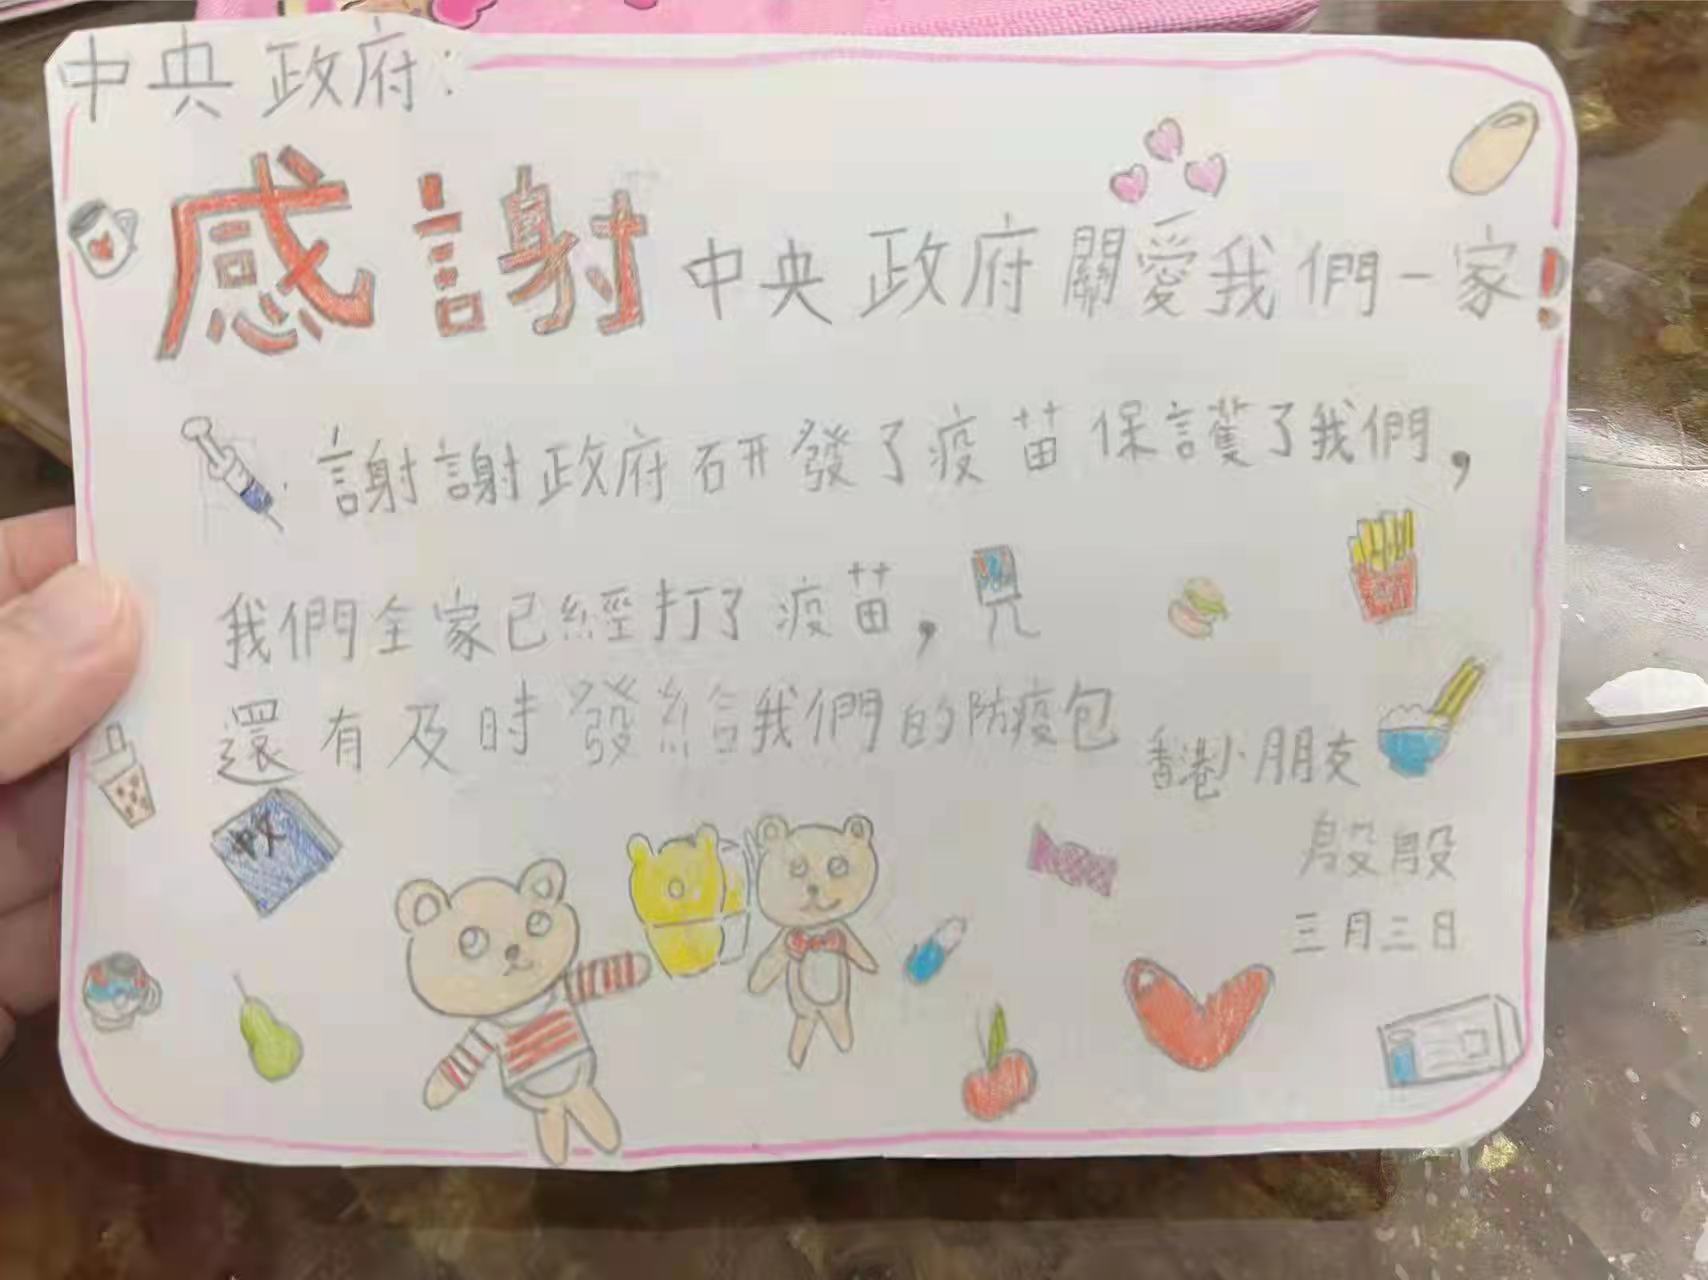 中央政府：
感謝中央政府關愛我們一家！
謝謝政府研發了疫苗保護了我們，
我們全家已經打了疫苗，
還有及時發給我們的防疫包
香港小朋友
殷殷
三月三日